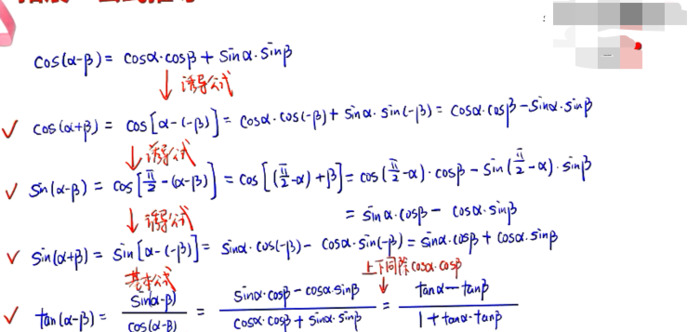 cos(α-β) = cosα·cosβ + sinα·sinβ
↓诱导公式
✓ cos(α+β) = cos[α-(-β)] = cosα·cos(-β) + sinα·sin(-β) = cosα·cosβ - sinα·sinβ
↓诱导公式
✓ sin(α-β) = cos[π/2-(α-β)] = cos[(π/2-α)+β] = cos(π/2-α)·cosβ - sin(π/2-α)·sinβ
= sinα·cosβ - cosα·sinβ
↓诱导公式
✓ sin(α+β) = sin[α-(-β)] = sinα·cos(-β) - cosα·sin(-β) = sinα·cosβ + cosα·sinβ
基本公式 上下同除cosα·cosβ ↓
✓ tan(α-β) = sin(α-β)/cos(α-β) = (sinα·cosβ - cosα·sinβ)/(cosα·cosβ + sinα·sinβ) = (tanα - tanβ)/(1 + tanα·tanβ)